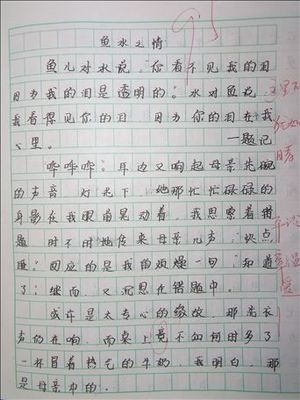 鱼水之情
鱼儿对水说：你看不见我的泪
因为我的泪是透明的；水对鱼说
我看得见你的泪 因为你的泪在我
心里。 —题记
哗哗哗：耳边又响起母亲洗碗
的声音 灯光下 她那忙忙碌碌的
身影在我眼前晃动着，我思索着错
题 时不时地传来母亲几声：快点
睡：回应的是我的烦燥一句：知道
了：继而，又沉思在错题中。
或许是太专心的缘故，那洗衣
声仍在响，而桌上竟不知何时多了
一杯冒着热气的牛奶，我明白，那
是母亲冲的.